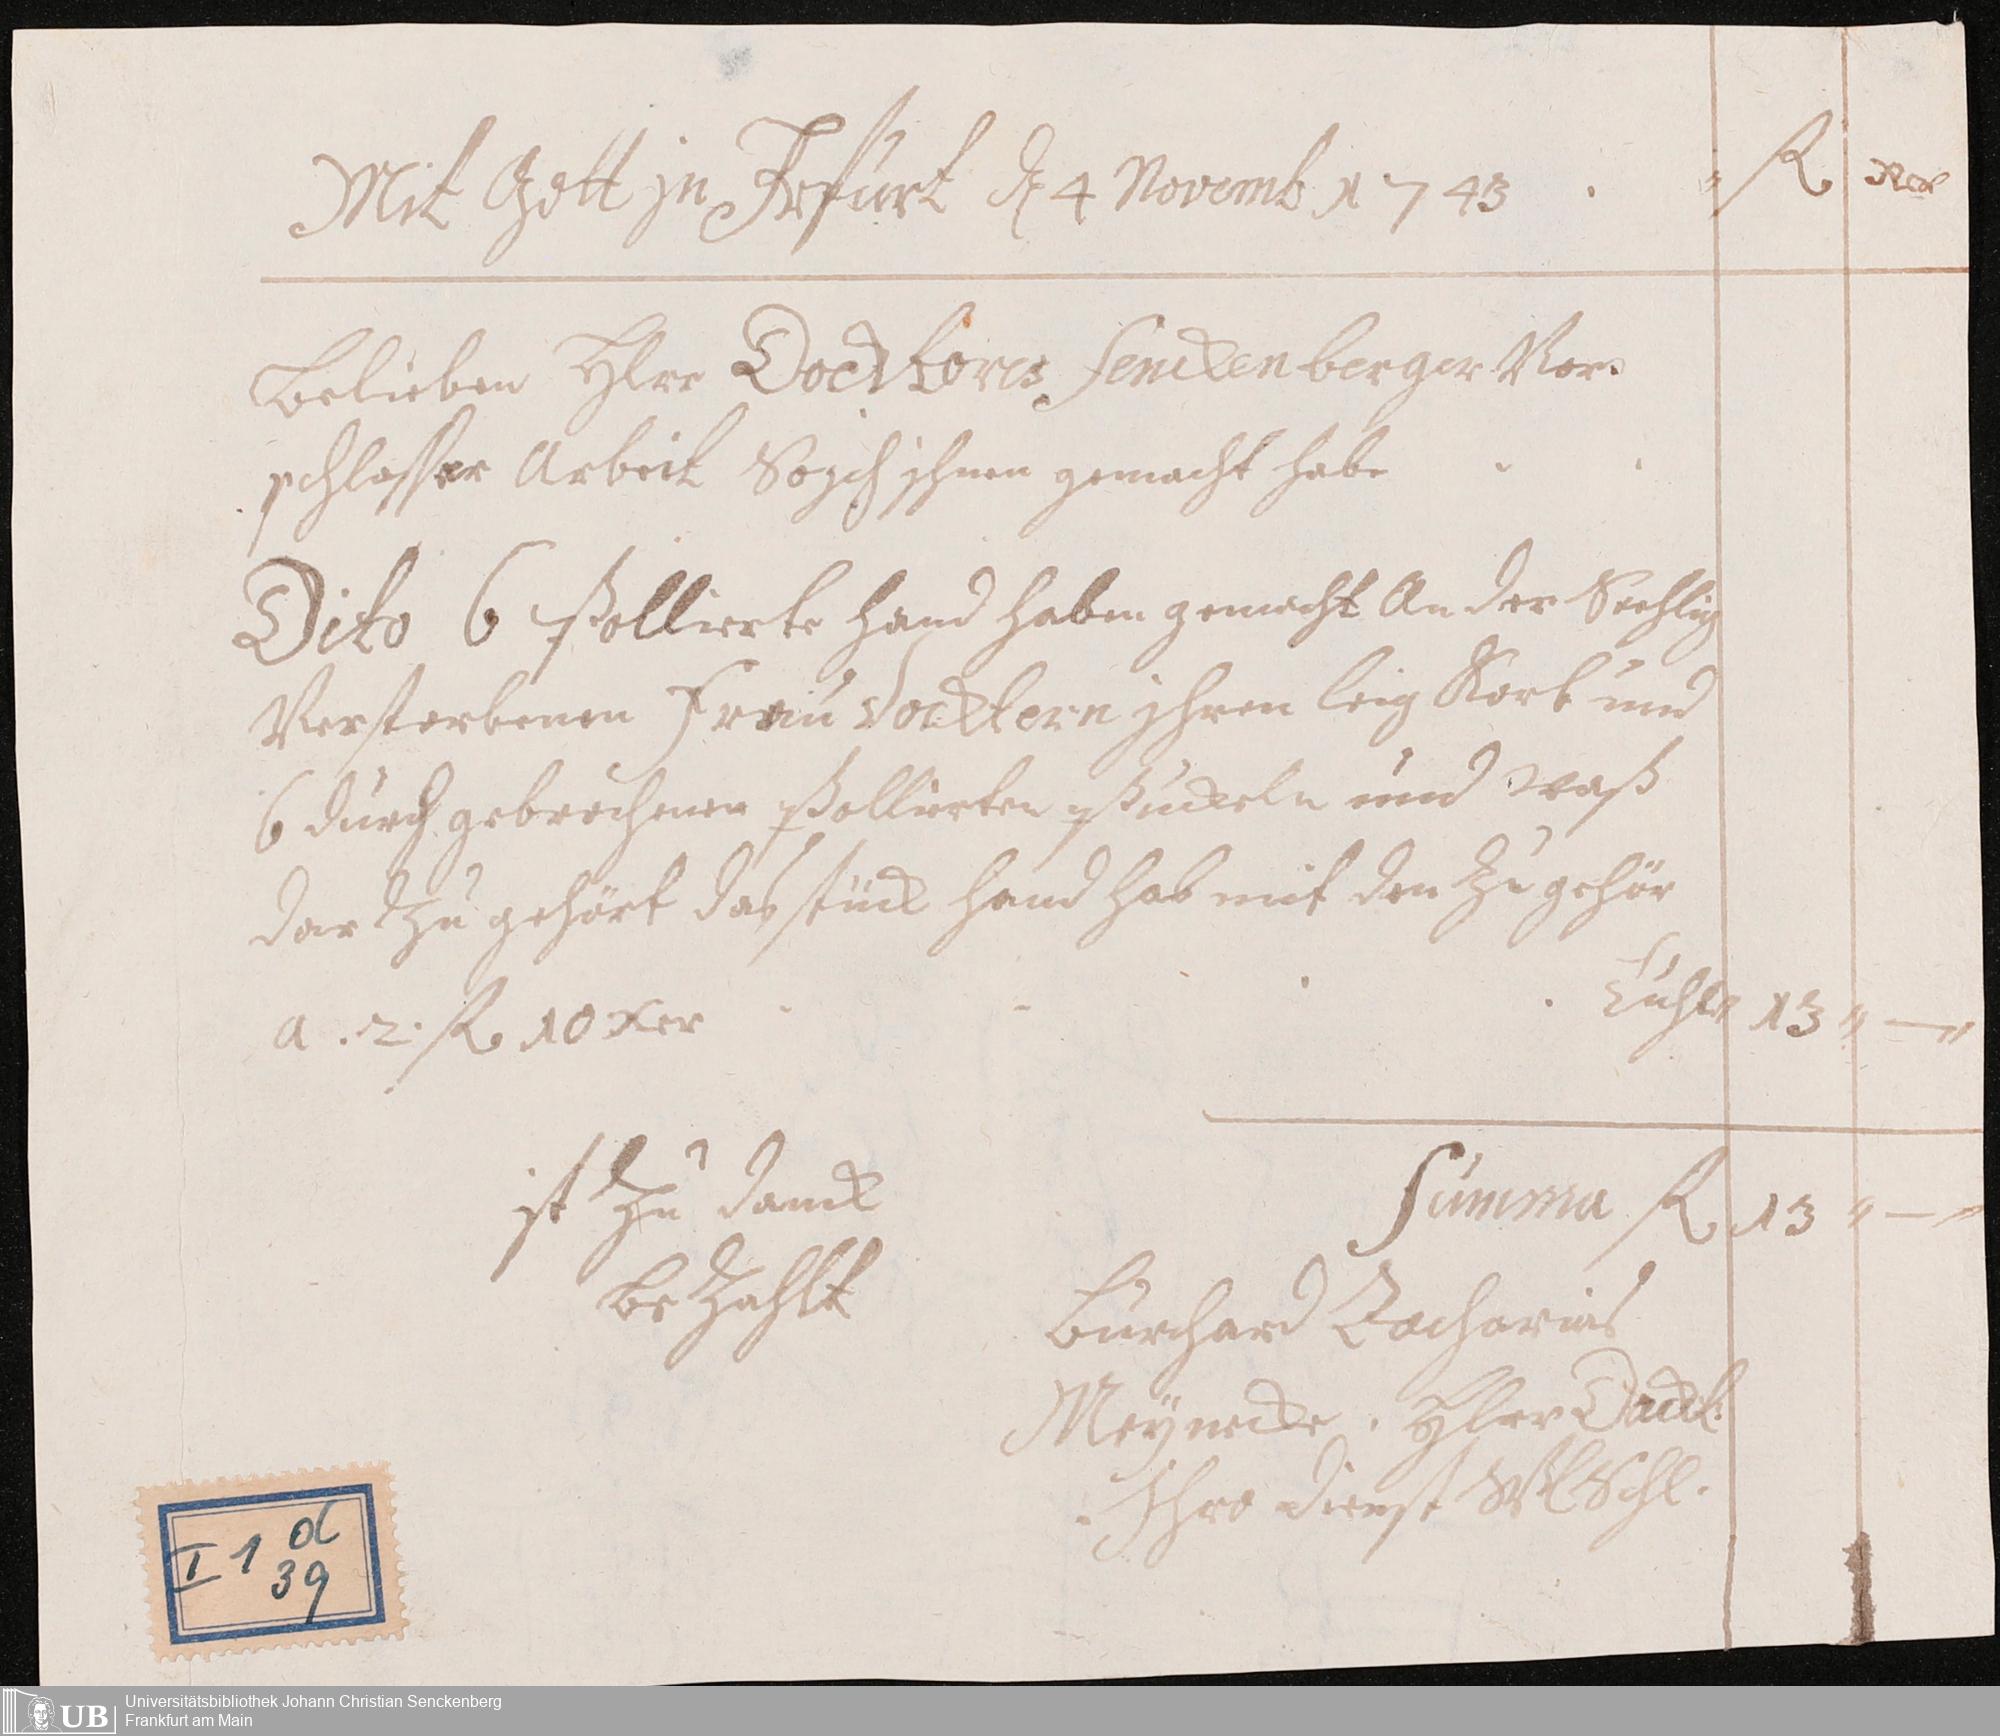 Mit Gott in Frfurt d 4 Novemb 1743 fl Xer
Belieben Hr Docktores Senckenberger Vor
schlosser Arbeit So ich ihnen gemacht habe
Dito 6 Pollierte Hand haben gemacht An der Seehlig
Verstorbenen Frau Docktern ihren leig Korb und
6 durch gebrochenen Pollierten Puckeln und waß
dar Zu gehört das stück Hand Hab mit den Zu gehör
a . 2 . fl 10 Xer 13 —
Summa fl 13 —
ist Zu danck
be Zahlt
Burchard Zacharias
Meÿnecke
Ihro dienst Schl.
I 1 d
39
UB
Universitätsbibliothek Johann Christian Senckenberg
Frankfurt am Main